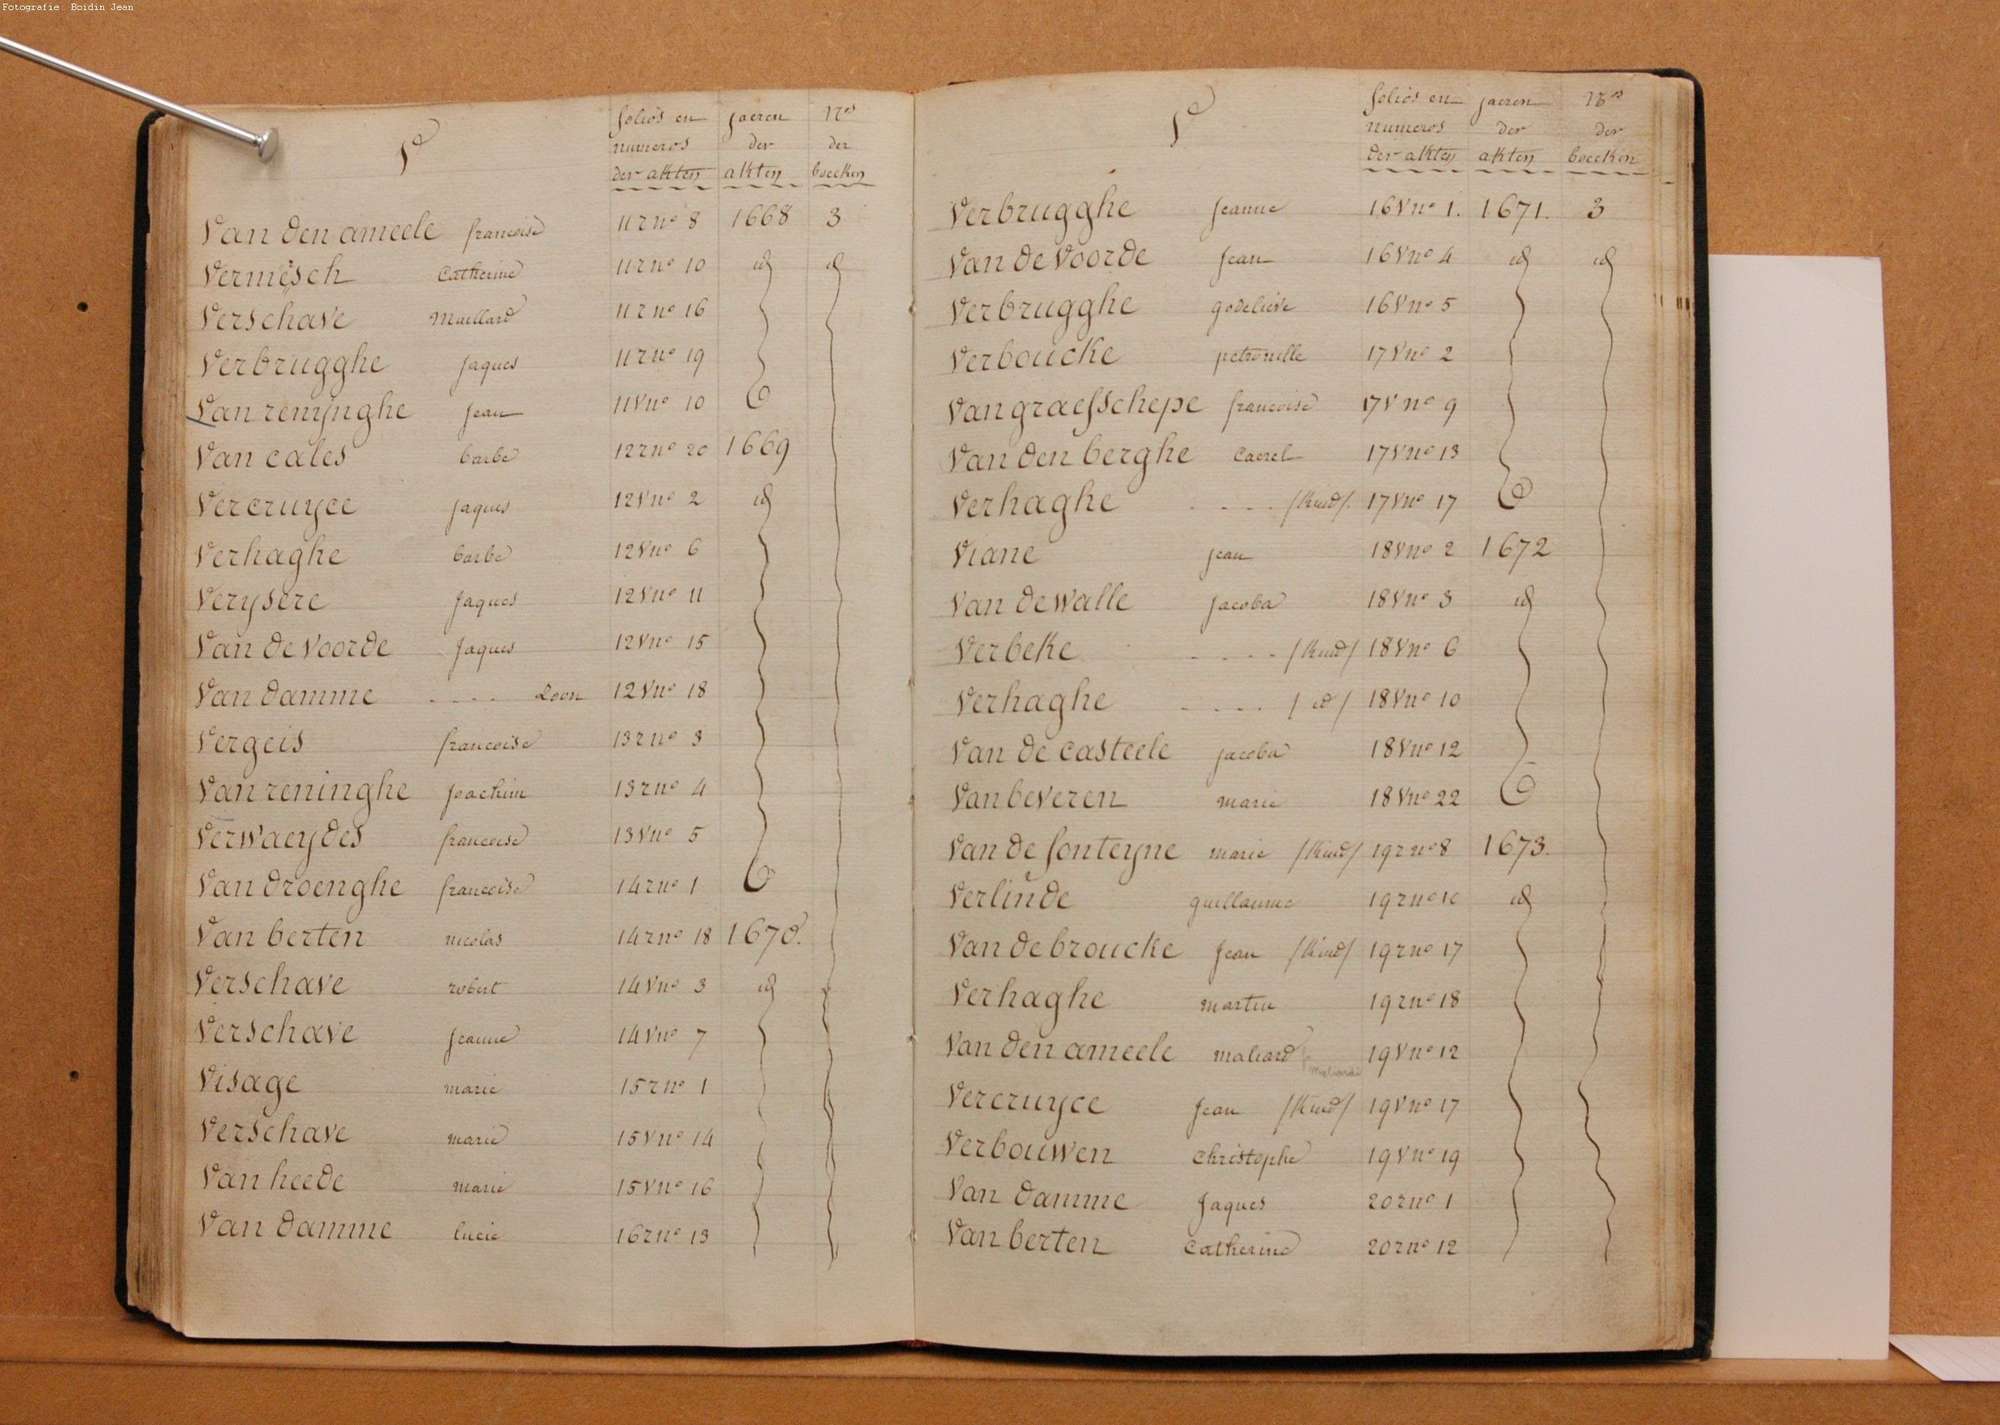 Fotografie Boidin Jean
V
folios en jaeren Nos
numeros der der
der akten akten boecken
Van den ameele francoise 11 r no 8 1668 3
Vermesch Catherine 11 r no 10 id id
Verschave Maillard 11 r no 16
Verbrugghe jaques 11 r no 19
Van renynghe Jean 11 V no 10
Van cales barbe 12 r no 20 1669
Vercruyce jaques 12 V no 2 id
Verhaghe barbe 12 V no 6
Verysere Jaques 12 V no 11
Van de Voorde Jaques 12 V no 15
Van damme .... Loon 12 V no 18
Vergeis francoise 13 r no 3
Van reninghe Joachim 13 r no 4
Verwaeydes francoise 13 V no 5
Van droenghe francoise 14 r no 1
Van berten nicolas 14 r no 18 1670.
Verschave robert 14 V no 3 id
Verschave Jeanne 14 V no 7
Visage marie 15 r no 1
Verschave marie 15 V no 14
Van heede marie 15 V no 16
Van damme lucie 16 r no 13
V
folios en jaeren Nos
numeros der der
der akten akten boecken
Verbrugghe Jeanne 16 V no 1. 1671. 3
Van de Voorde Jean 16 V no 4 id id
Verbrugghe godelieve 16 V no 5
Verboucke petronille 17 V no 2
Van graefschepe francoise 17 V no 9
Van den berghe Caerel 17 V no 13
Verhaghe .... /Kind/. 17 V no 17
Viane jean 18 V no 2 1672
Van de walle Jacoba 18 V no 3 id
Verbeke .... /Kind/ 18 V no 6
Verhaghe .... / id / 18 V no 10
Van de casteele jacoba 18 V no 12
Van beveren marie 18 V no 22
Van de fonteyne marie /Kind/ 19 r no 8 1673.
Verlinde guillaume 19 r no 10 id
Van de broucke Jean /Kind/ 19 r no 17
Verhaghe martin 19 r no 18
Van den ameele maliard 19 V no 12
Vercruyce Jean /Kind/ 19 V no 17
Verbouwen Christophe 19 V no 19
Van damme Jaques 20 r no 1
Van berten Catherine 20 r no 12